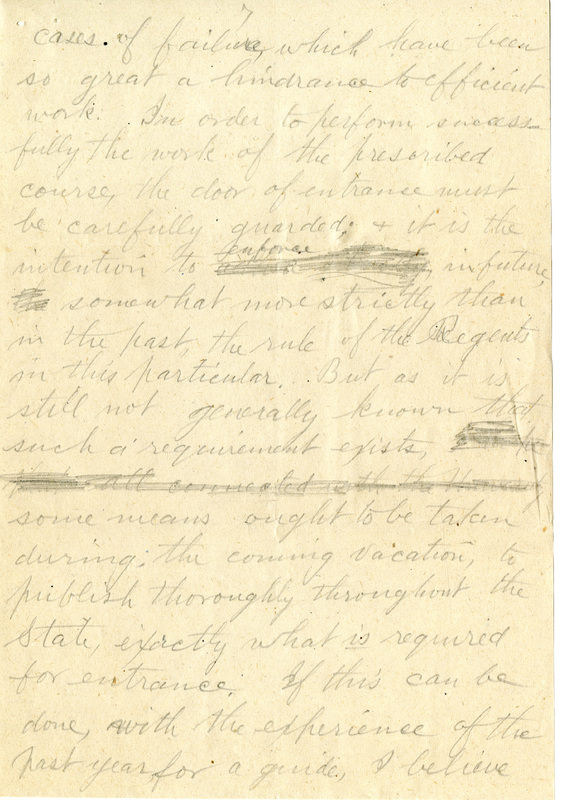 7
cases of failure, which have been
so great a hindrance to efficient
work. In order to perform success-
fully the work of the prescribed
course, the door of entrance must
be carefully guarded; & it is the
enforce
intention to in future,
somewhat more strictly than
in the past, the rule of the Regents
in this particular. But as it is
still not generally known that
such a requirement exists,
all connected with the
some means ought to be taken
during the coming vacation, to
publish thoroughly throughout the
State, exactly what is required
for entrance. If this can be
done, with the experience of the
past year for a guide, I believe